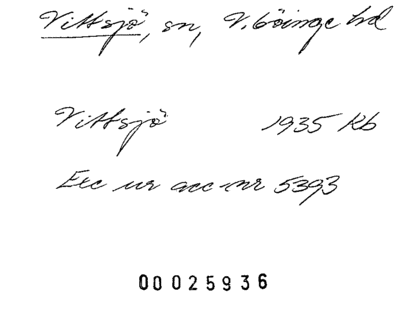 Vittsjö, sn, V. Göinge hd
Vittsjö 1935 Kb
Exc ur acc nr 5393
00025936